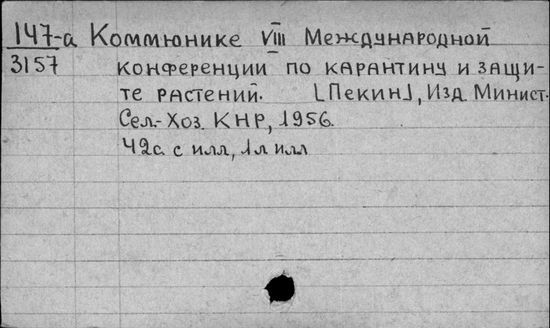 147-а Коммюнике VIII Международной
3157 конференции по карантину и защи-
те растений. [Пекин], Изд. Минист.
Сел.-Хоз. КНР, 1956.
42с. с илл, 1л илл